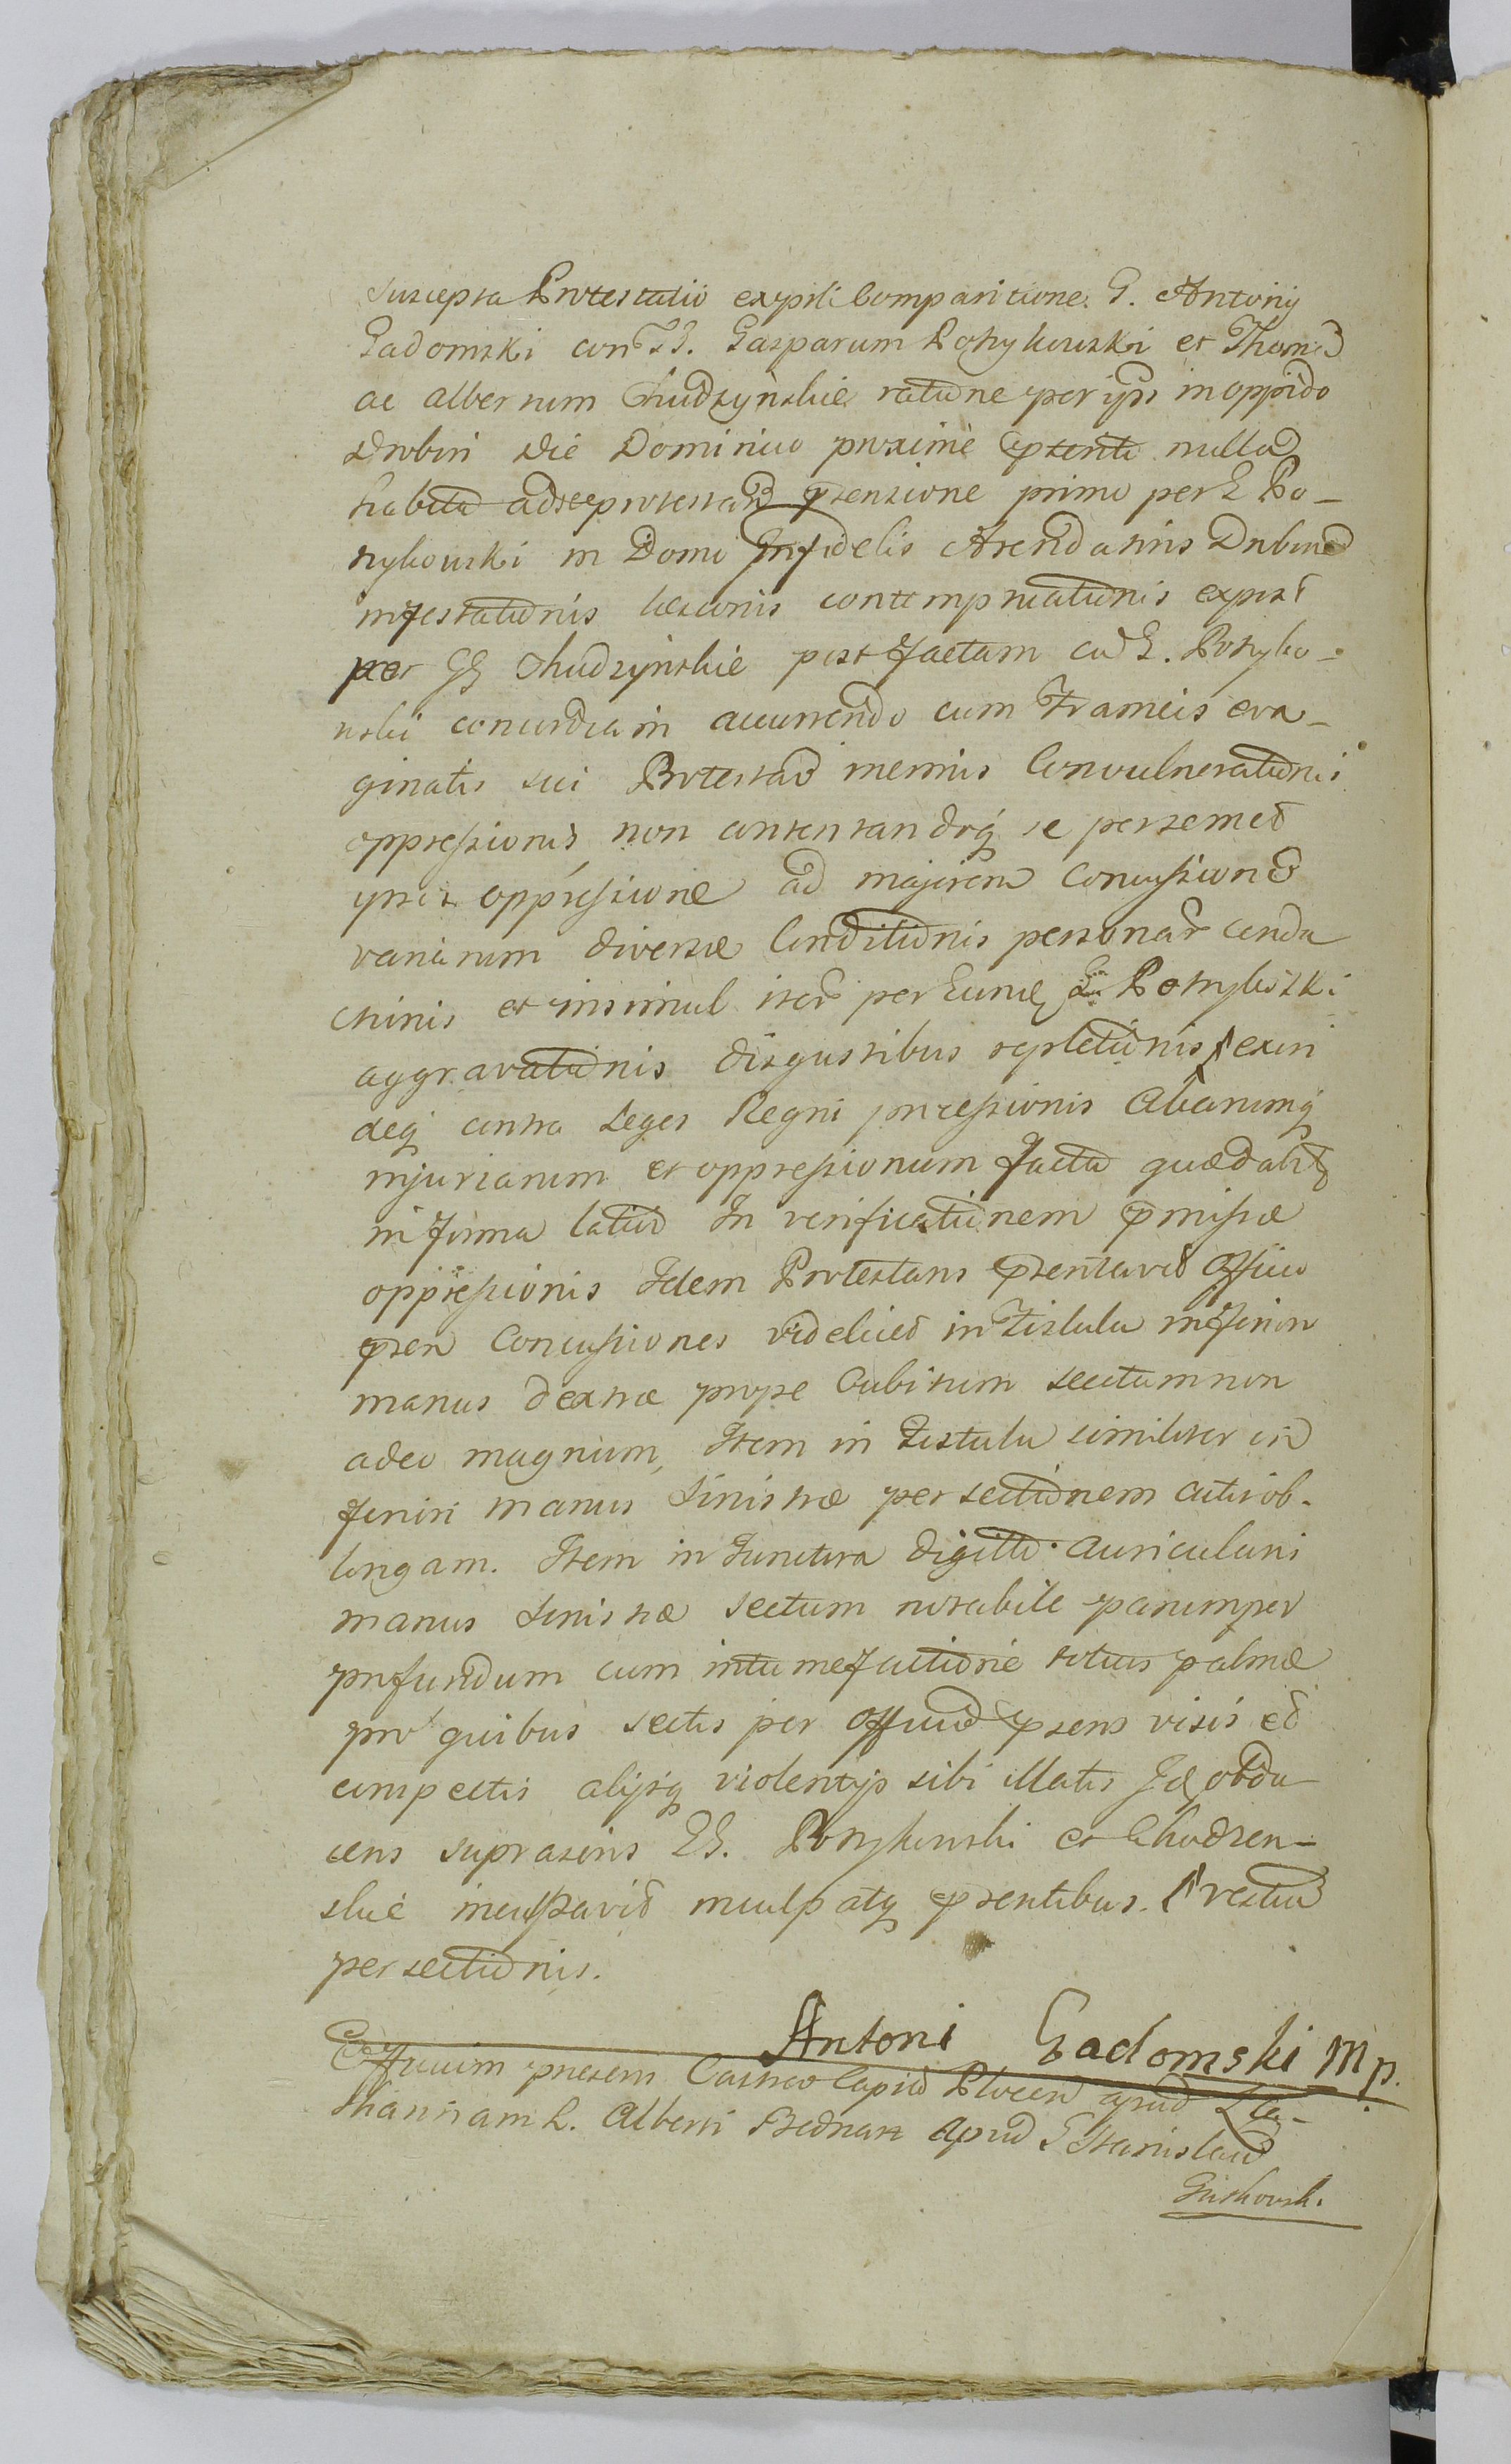 suscepta Protestatio ex psti Comparitione G. Antonij
Gadomski con GG. Gasparum Potrykowski et Thomã
ac Albertum Chudzynskie ratione per ipsos in oppido
Drobin Die Dominico proxime pterito nulla
habita ad se protestañ ptensione primo per G Po-
trykowski in Domo Infidelis Arendarius Drobineñ
infestationis læsionis contemprıationis exposť
per GG Chudzynskie post factam cũ G. Potryko-
wski concordiam accurrendo cum Frameis eva-
ginatis sui Protestañ inermis Convulnerationis
oppressionis, non contentandoq se persemet
ipsos oppressione ad majorem Concussionẽ
variarum diversæ Conditionis personar condu
ctionis et insimul iteř per Eundẽ G Potrykowski
aggravationis disgustibus repletionis exin
deq contra Leges Regni processionis Aliarumq
injuriarum et oppressionum facta quæ dabitř
in forma latiori In verificationem pmissæ
oppressionis Idem Protestans psentavit Officio
pseñ Concussiones videlicet in Fistula inferiori
manus dextræ prope Cubitum sectum non
adeo magnum, Item in Fistula similiter in
feriori manus sinistræ persectionem cutis ob-
longam. Item in Junctura digiti auricularii
manus sinistræ sectum notabile parumper
profundum cum intumefactione totius palmæ
pro quibus sectis per Officiũ psens visis et
conspectis alijsq violentijs sibi illatis Idẽ obdu-
cens suprascriptos GG. Potrykowski et Chudzyn-
skie inculpavit inculpatq psentibus. vestiũ
persectionis.
Antoni Gadomski mp.
Officium præsens Castreo Capit Plocen apud
L. Alberti Bednarz apud G Stanislaũ